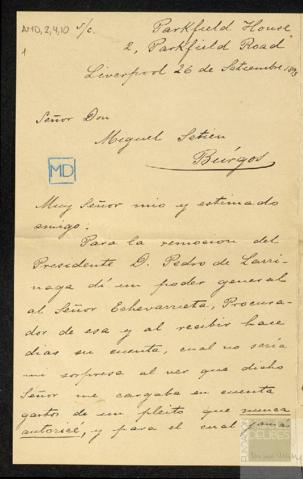 AMD, 2, 4, 10 s/c.
1
Parkfield House
2, Parkfield Road
Liverpool 26 de Setiembre
Señor Don
Miguel Setien
Búrgos
MD
Muy Señor mio y estimado
amigo:
Para la remocion del
Presidente D. Pedro de Larri-
naga dí un poder general
al Señor Echevarrieta, Procura-
dor de esa y al recibir hace
dias su cuenta, cual no seria
mi sorpresa al ver que dicho
Señor me cargaba en cuenta
gastos de un pleito que nunca
autoricé, y para el cual
FUNDACIÓN
DELIBES